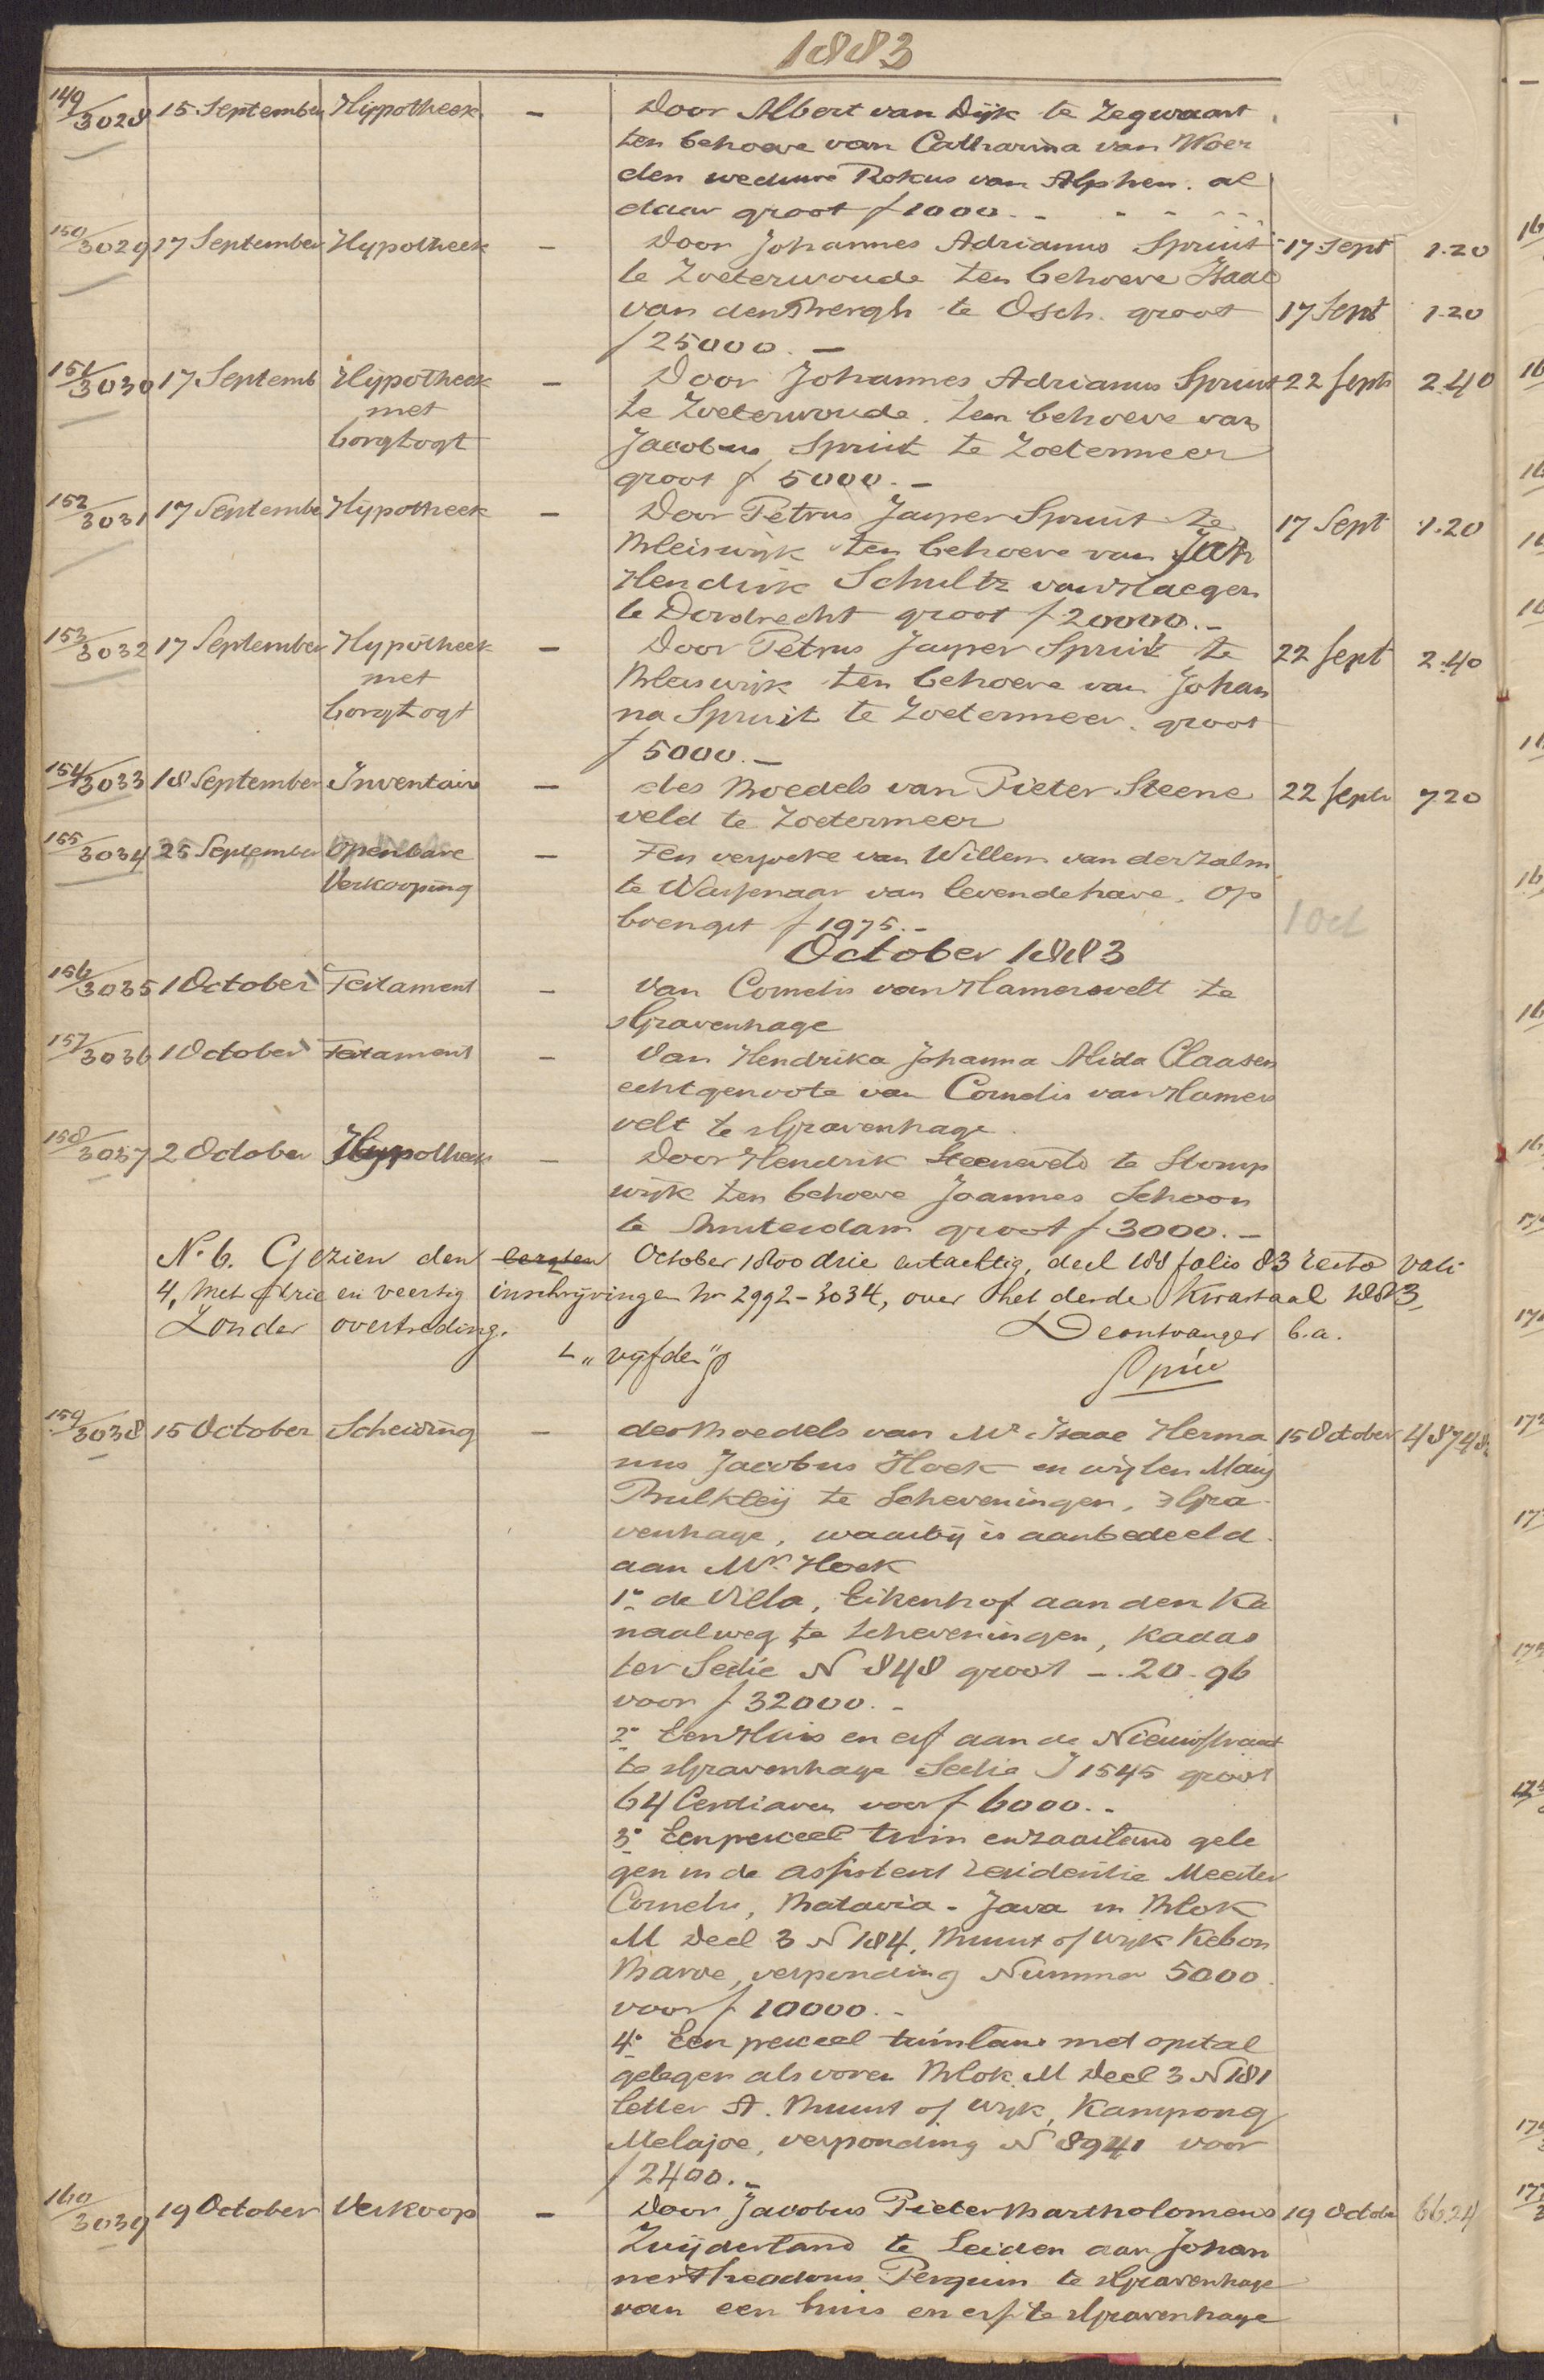 1883
149/3028 15 September Hypotheek — Door Albert van Dijk te Zegwaart
ten behoeve van Catharina van Woer
den weduwe Rokus van Alphen al
daar groot f 1000.-
150/3029 17 September Hypotheek — Door Johannes Adrianus Spruit 17 Sept 1.20
te Zoeterwoude ten behoeve Isaac
van den Bergh te Osch. groot 17 Sept 1.20
f 25000.—
151/3030 17 Septemb Hypotheek — Door Johannes Adrianus Spruit 22 Septr 2.40
met te Zoeterwoude. ten behoeve van
borgtogt Jacobus Spruit te Zoetermeer
groot f 5000.—
152/3031 17 Septembe Hypotheek — Door Petrus Jasper Spruit te 17 Sept 1.20
Bleiswijk ten behoeve van Jan
Hendrik Schultz van Haegen
te Dordrecht groot f 20000.-
153/3032 17 September Hypotheek — Door Petrus Jasper Spruit te 22 Sept 2.40
met Bleiswijk ten behoeve van Johan
borgtogt na Spruit te Zoetermeer. groot
f 5000.—
154/3033 18 September Inventaris — des Boedels van Pieter Steene 22 Septr 7.20
veld te Zoetermeer
155/3034 25 September Openbare — Ten verzoeke van Willem van der Zalm
Verkooping te Wassenaar van levendehave. Op
brengst f 1975.- 1 Oct
October 1883
156/3035 1 October Testament — Van Cornelis van Hamersvelt te
sGravenhage
157/3036 1 October Testament — Van Hendrika Johanna Alida Claasen
echtgenoote van Cornelis van Hamers
velt te sGravenhage.
158/3037 2 October Hypotheek — Door Hendrik Steeneveld te Stomp
wijk ten behoeve Joannes Schoon
te Amsterdam groot f 3000.—
No. 6. Gezien den eersten October 1800 drie entachtig, deel 188 folio 83 recto vak
4, met drie en veertig inschrijvingen No 2992-3034, over het derde Kwartaal 1883,
Zonder overtreding. De ontvanger b.a.
L „ vijfden"
159/3038 15 October Scheiding — des Boedels van Mr Isaac Herma 15 October 48748
nus Jacobus Hoek en wijlen Mary
Bulkley te Scheveningen, sGra
venhage, waarbij is aanbedeeld
aan Mr Hoek
1o de Villa, Eikenhof aan den Ka
naalweg te Scheveningen, Kadas
ter Sectie N 848 groot -. 20. 96
voor f 32000.-
2o Een Huis en erf aan de Nieuwstraat
te sGravenhage Sectie J 1545 groot
64 Centiaren voor f 6000.-
3o Een perceel tuin en zaailand gele
gen in de assistent residentie Meester
Cornelis, Batavia - Java in Blok
M Deel 3 N 184, Buurt of wijk Kebon
Baroe, verponding Nummer 5000.
voor f 10000.-
4o Een perceel tuinland met opstal
gelegen als voren Blok M Deel 3 N 181
letter A. Buurt of wijk, Kampong
Melajoe, verponding N 8941 voor
f 2400.-
160/3039 19 October Verkoop — Door Jacobus Pieter Bartholomeus 19 Octobe 66.24
Zuijderland te Leiden aan Johan
nes Theodorus Perquin te sGravenhage
van een huis en erf te sGravenhage